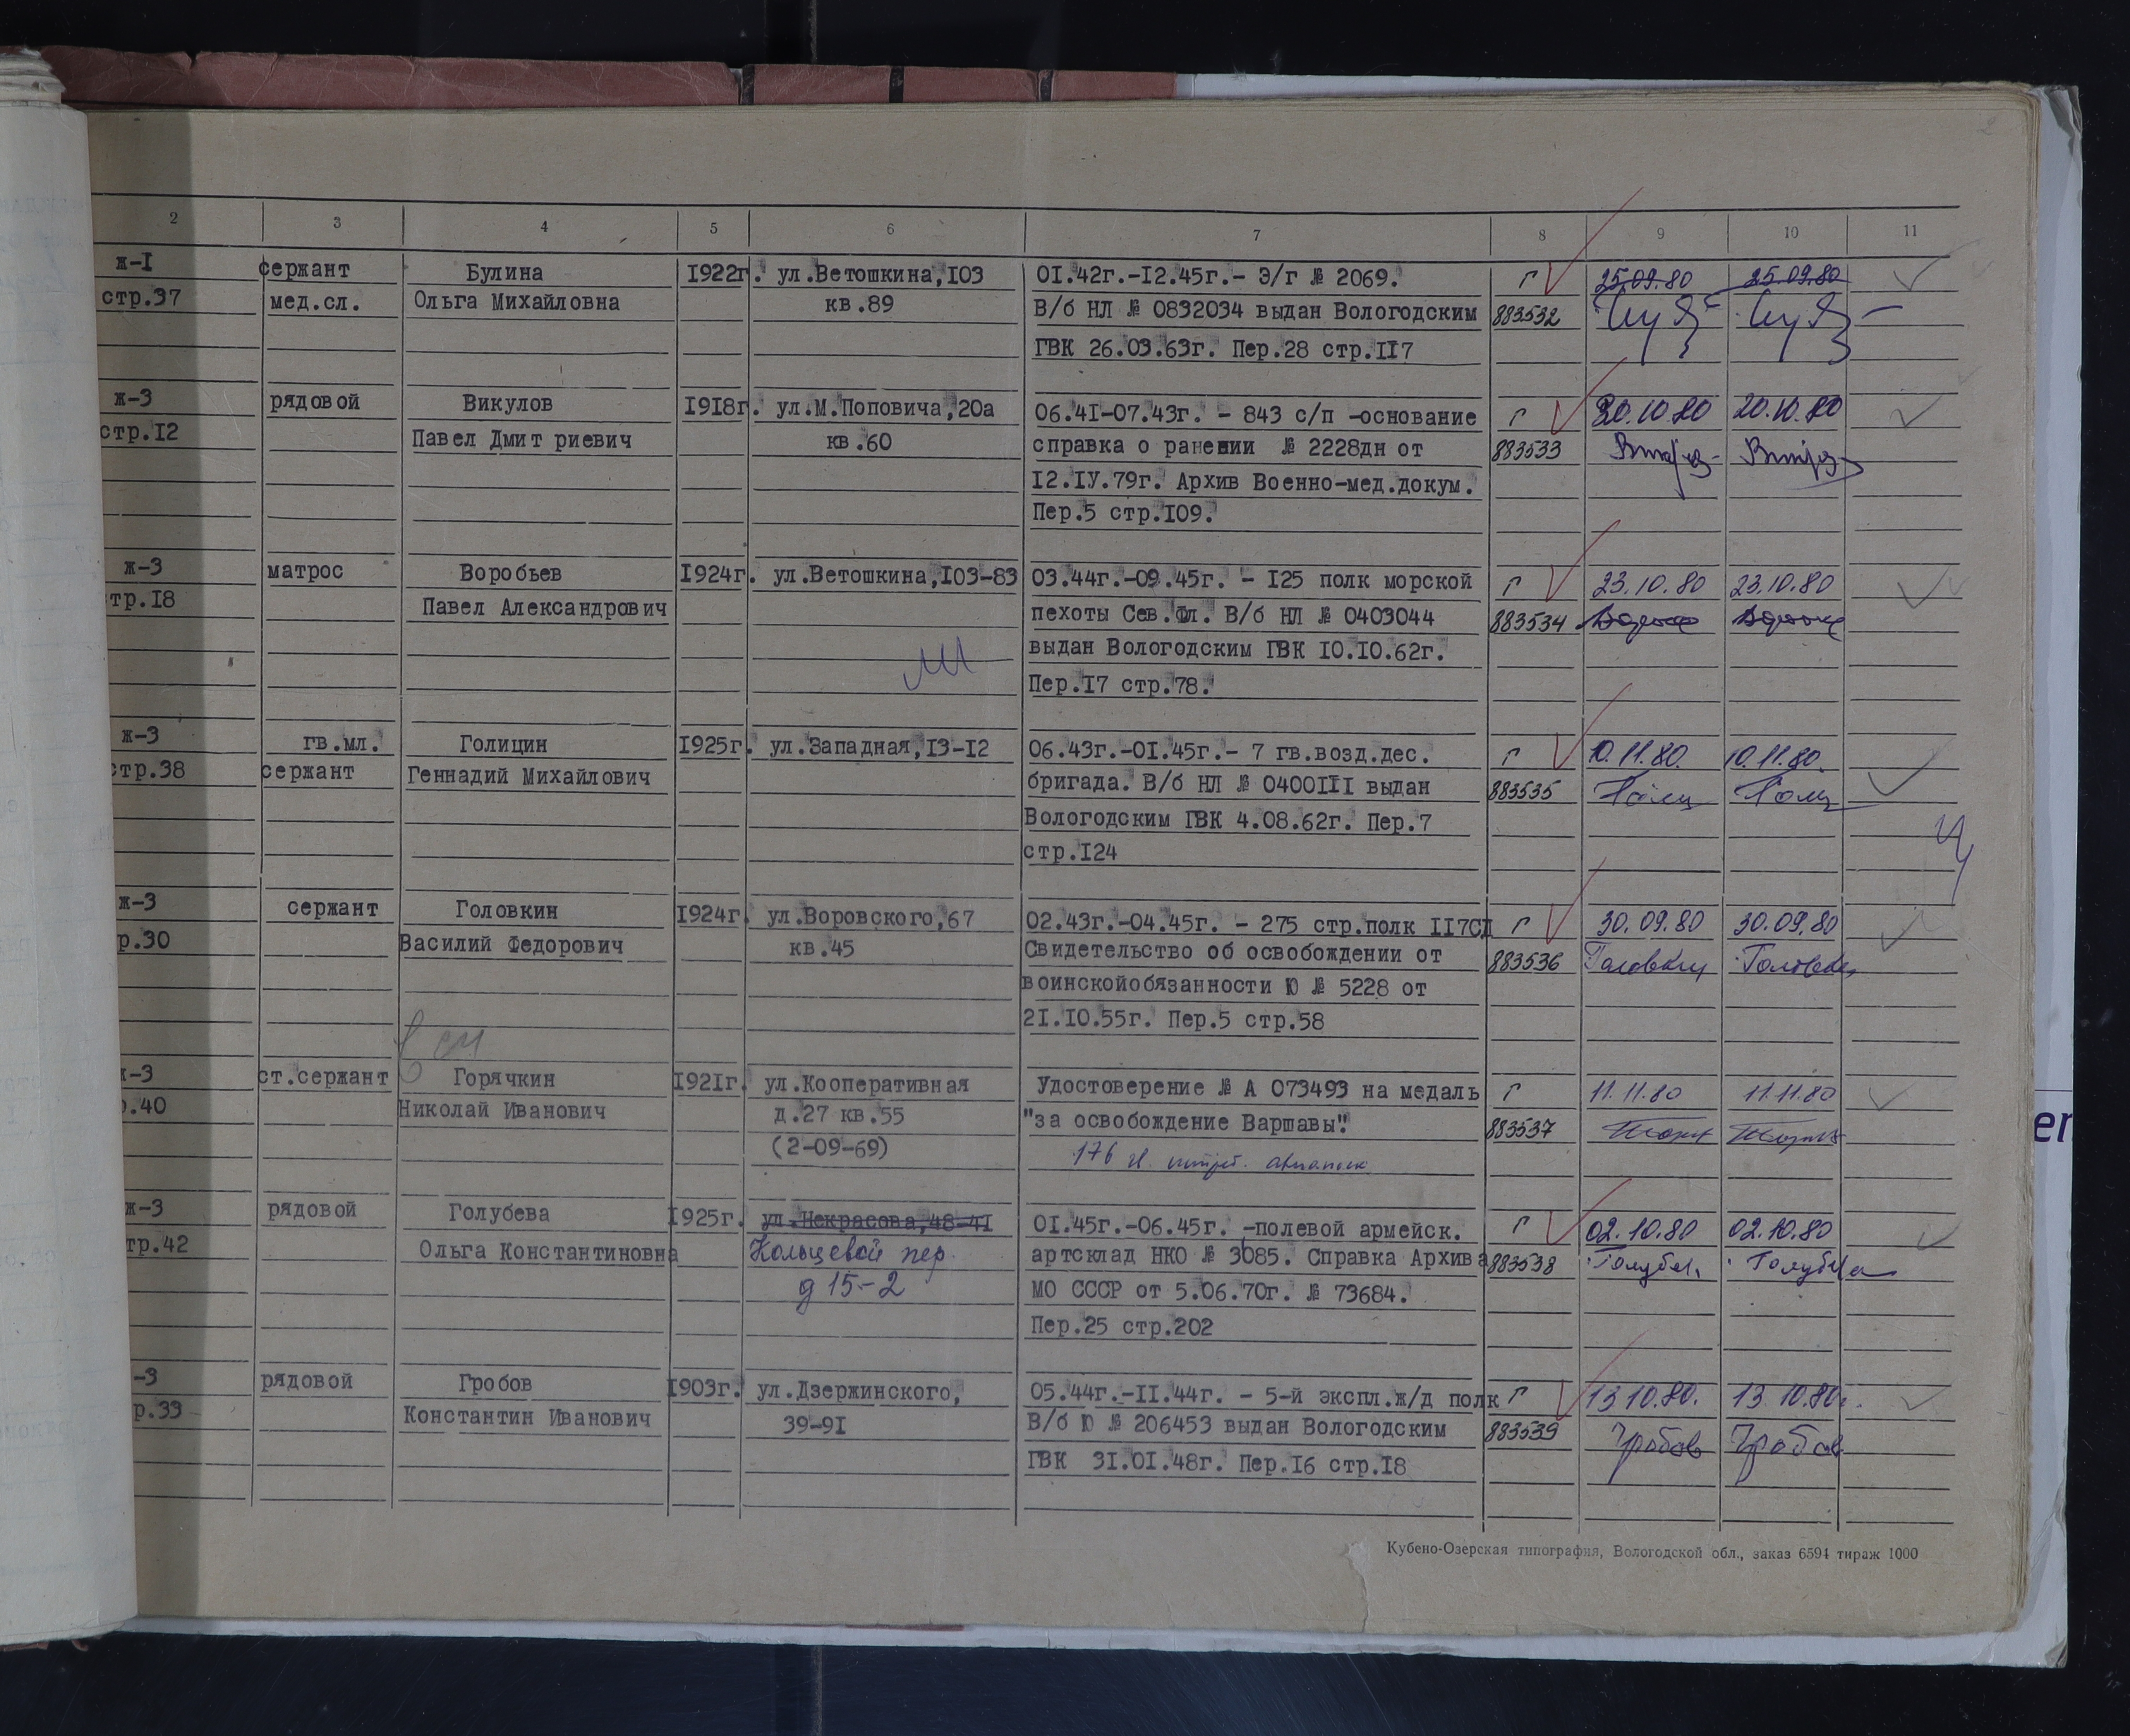 2 3 4 5 6 7 8 9 10 11
ж-I сержант Булина I922г. ул.Ветошкина,I03 0I.42г.-I2.45г.- Э/г № 2069. г 25.09.80 25.09.80
стр.37 мед.сл. Ольга Михайловна кв.89 В/б НЛ № 0832034 выдан Вологодским 883532
ГВК 26.03.63г. Пер.28 стр.II7
ж-3 рядовой Викулов I9I8г. ул.М.Поповича,20а 06.4I-07.43г. - 843 с/п -основание г 20.10.80 20.10.80
стр.I2 Павел Дмит риевич кв.60 справка о ранении № 2228дн от 883533
I2.IУ.79г. Архив Военно-мед.докум.
Пер.5 стр.I09.
ж-3 матрос Воробьев I924г. ул.Ветошкина,I03-83 03.44г.-09.45г. - I25 полк морской г 23.10.80 23.10.80
тр.I8 Павел Александрович пехоты Сев.Фл. В/б НЛ № 0403044 883534
выдан Вологодским ГВК I0.I0.62г.
Пер.I7 стр.78.
ж-3 гв.мл. Голицин I925г. ул.Западная,I3-I2 06.43г.-0I.45г.- 7 гв.возд.дес. г 10.11.80. 10.11.80.
стр.38 сержант Геннадий Михайлович бригада. В/б НЛ № 0400III выдан 883535 Голиц Голиц
Вологодским ГВК 4.08.62г. Пер.7
стр.I24
ж-3 сержант Головкин I924г. ул.Воровского,67 02.43г.-04.45г. - 275 стр.полк II7СД г 30.09.80 30.09.80
р.30 Василий Федорович кв.45 Свидетельство об освобождении от 883536 Головкин Головкин
воинскойобязанности Ю № 5228 от
2I.I0.55г. Пер.5 стр.58
ж-3 ст.сержант Горячкин I92Iг. ул.Кооперативная Удостоверение № А 073493 на медаль г 11.11.80 11.11.80
р.40 Николай Иванович д.27 кв.55 "за освобождение Варшавы". 883537
(2-09-69) 176 гв. истреб. авиаполк
ж-3 рядовой Голубева I925г. ул.Некрасова,48-4I 0I.45г.-06.45г. -полевой армейск. г 02.10.80 02.10.80
тр.42 Ольга Константиновна Кольцевой пер. артсклад НКО № 3085. Справка Архива 883538 Голубев Голубева
д 15-2 МО СССР от 5.06.70г. № 73684.
Пер.25 стр.202
-3 рядовой Гробов I903г. ул.Дзержинского, 05.44г.-II.44г. - 5-й экспл.ж/д полк г 13 10.80. 13 10.80г.
р.33 Константин Иванович 39-9I В/б Ю № 206453 выдан Вологодским 883539 Гробов Гробов
ГВК 3I.0I.48г. Пер.I6 стр.I8
Кубено-Озерская типография, Вологодской обл., заказ 6594 тираж 1000